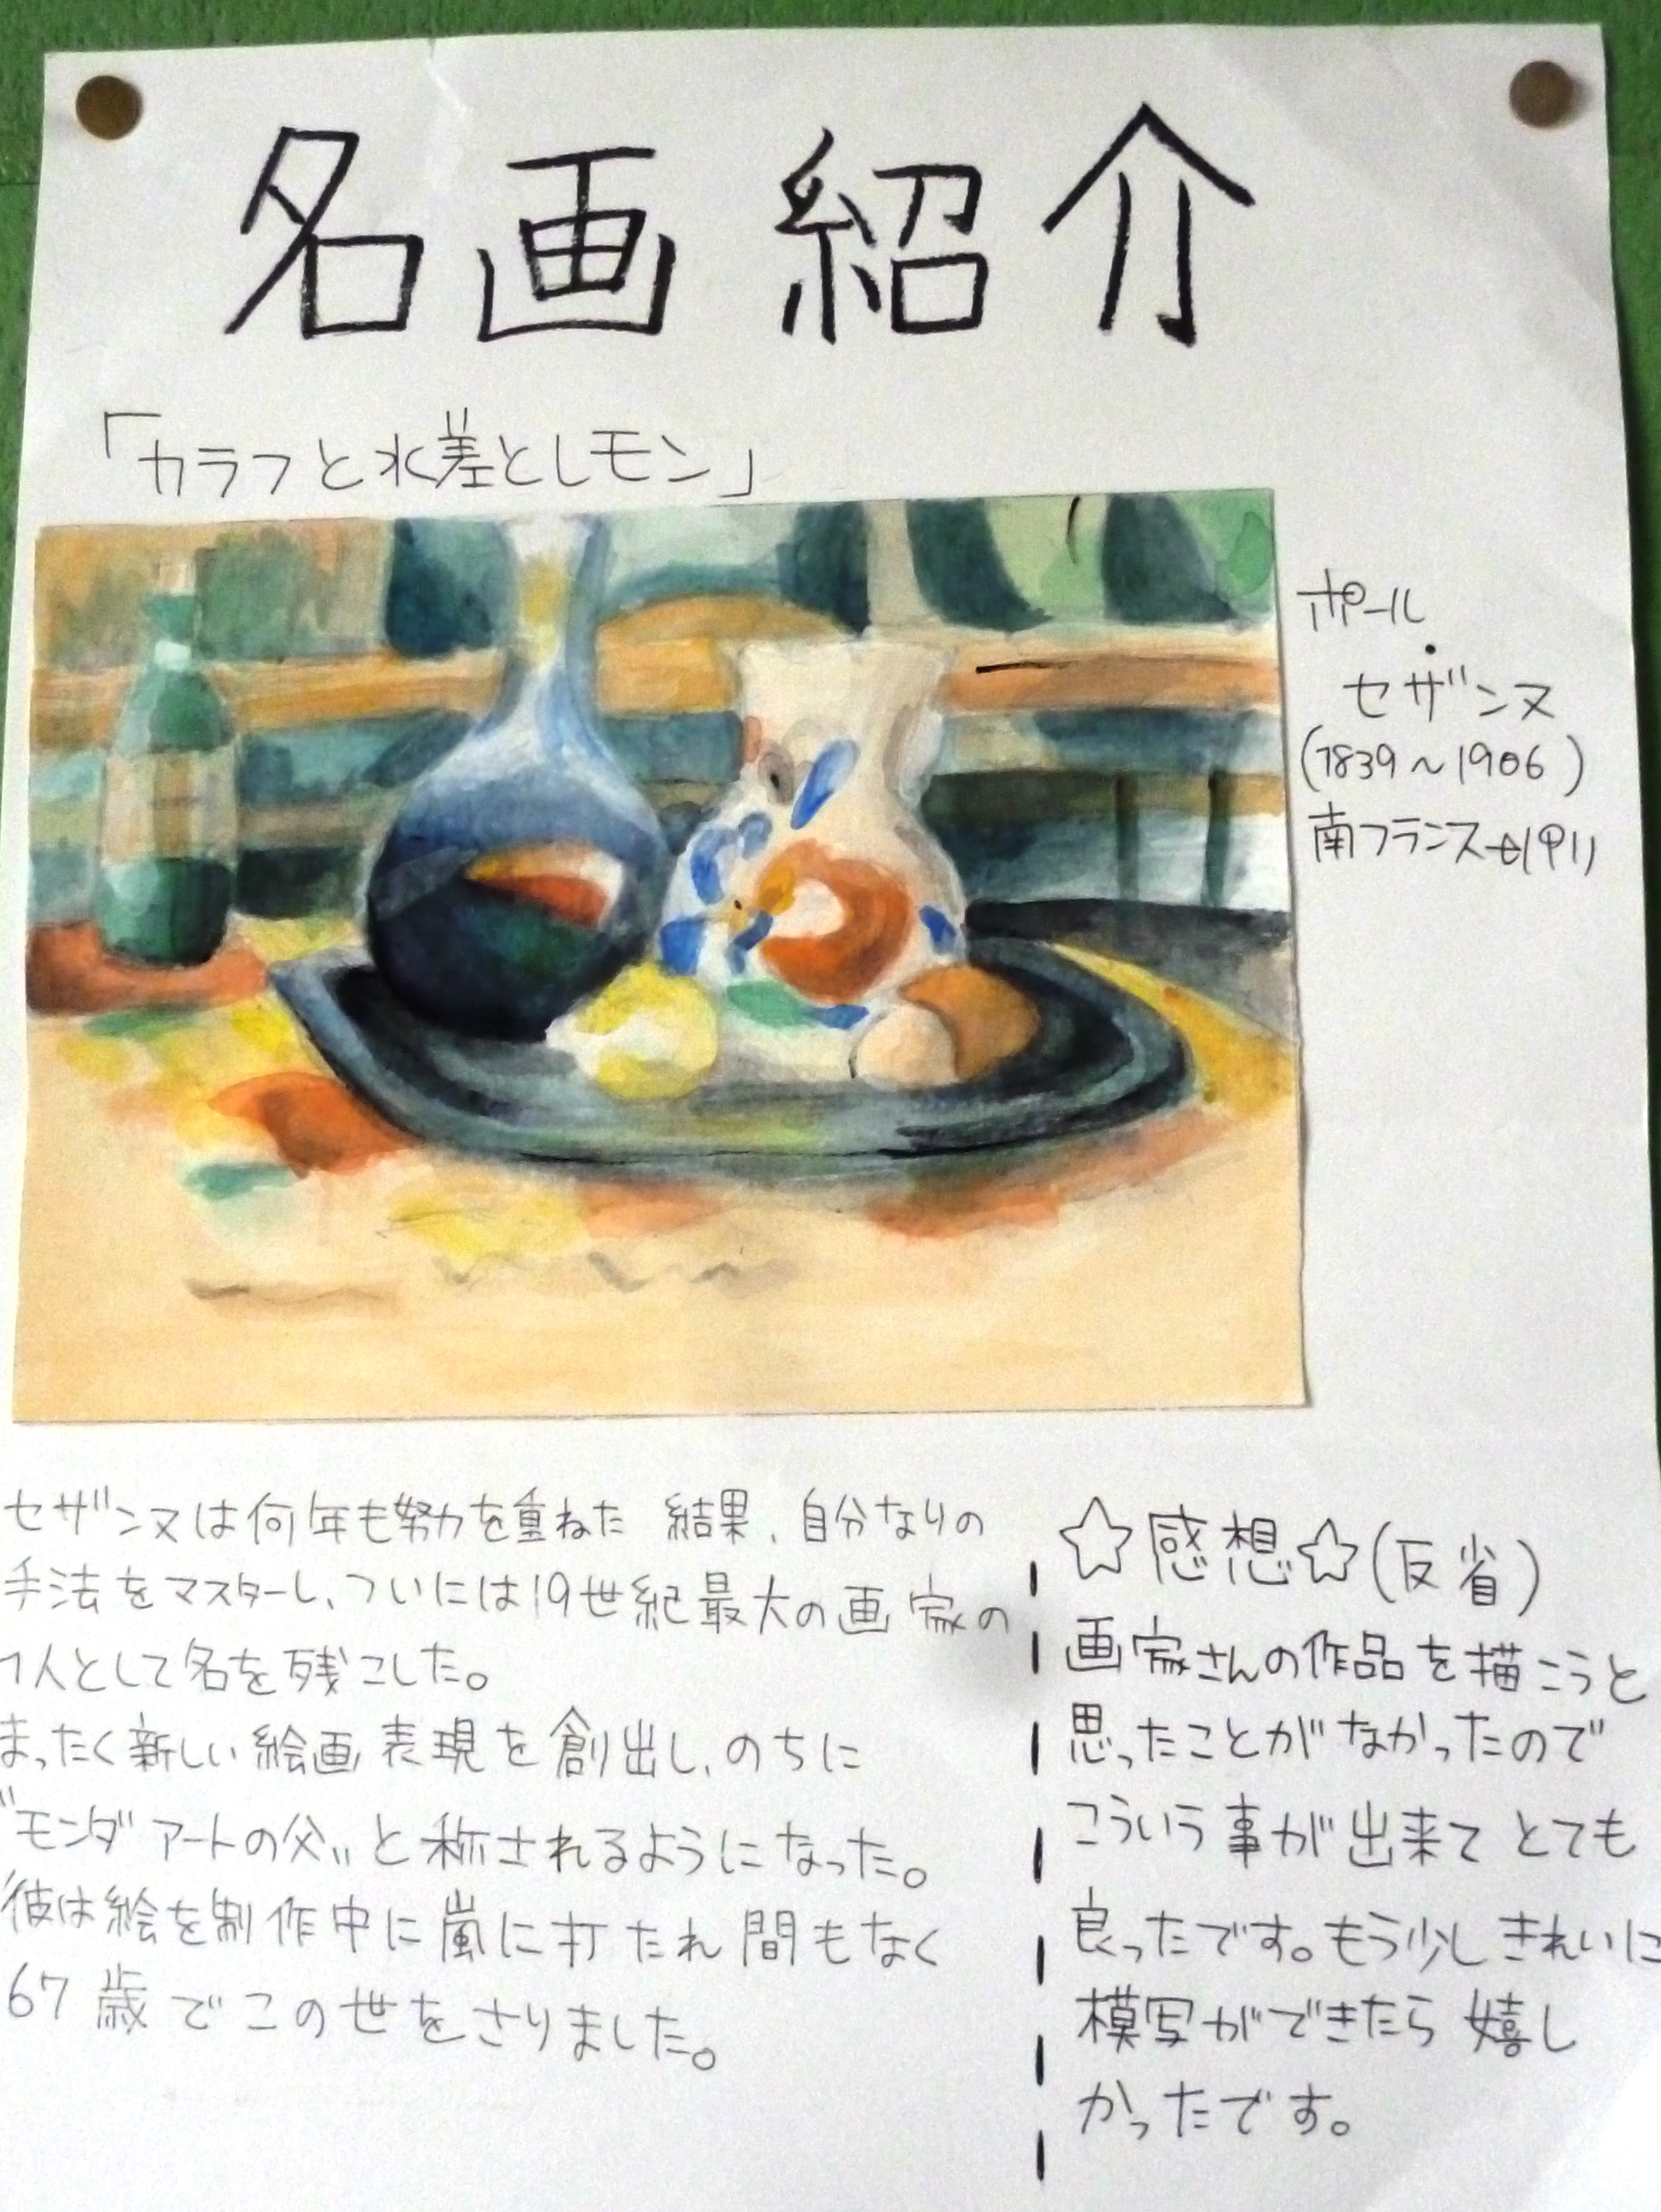 名画紹介
「カラフと水差とレモン」
ポール
・
セザンヌ
(1839～1906)
南フランス
セザンヌは何年も努力を重ねた 結果、自分なりの
手法をマスターし、ついには19世紀最大の画家の
1人として名を残こした。
まったく新しい絵画表現を創出し、のちに
"モンダアートの父〟と称されるようになった。
彼は絵を制作中に嵐に打たれ間もなく
67歳でこの世をさりました。
☆感想☆(反省)
画家さんの作品を描こうと
思ったことがなかったので
こういう事が出来てとても
良ったです。もう少しきれいに
模写ができたら嬉し
かったです。